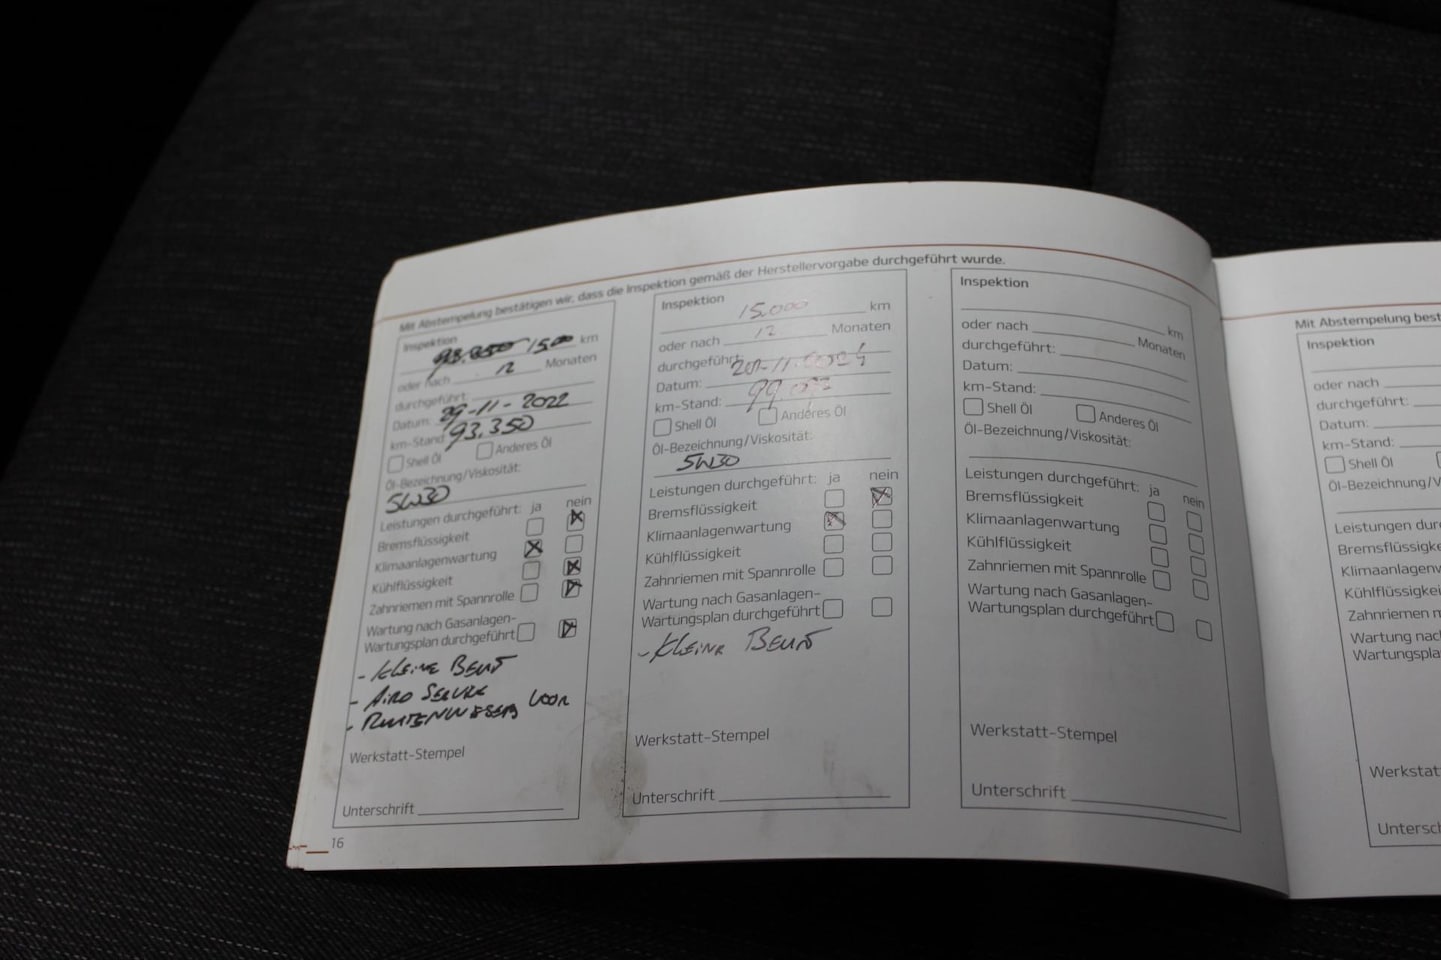 Mit Abstempelung bestätigen wir, dass die Inspektion gemäß der Herstellervorgabe durchgeführt wurde.
Inspektion
km
oder nach 12 Monaten
durchgeführt:
Datum: 29-11-2022
km-Stand: 93.350
Shell Öl Anderes Öl
Öl-Bezeichnung/Viskosität:
5W30
Leistungen durchgeführt: ja nein
Bremsflüssigkeit
Klimaanlagenwartung
Kühlflüssigkeit
Zahnriemen mit Spannrolle
Wartung nach Gasanlagen-
Wartungsplan durchgeführt
- KLEINE BEURT
- AIRO SERVICE
- RUITENWISSERS VOOR
Werkstatt-Stempel
Unterschrift
16
Inspektion
15.000 km
oder nach 12 Monaten
durchgeführt:
Datum:
km-Stand:
Shell Öl Anderes Öl
Öl-Bezeichnung/Viskosität:
5W30
Leistungen durchgeführt: ja nein
Bremsflüssigkeit
Klimaanlagenwartung
Kühlflüssigkeit
Zahnriemen mit Spannrolle
Wartung nach Gasanlagen-
Wartungsplan durchgeführt
- KLEINE BEURT
Werkstatt-Stempel
Unterschrift
Inspektion
km
oder nach Monaten
durchgeführt:
Datum:
km-Stand:
Shell Öl Anderes Öl
Öl-Bezeichnung/Viskosität:
Leistungen durchgeführt: ja nein
Bremsflüssigkeit
Klimaanlagenwartung
Kühlflüssigkeit
Zahnriemen mit Spannrolle
Wartung nach Gasanlagen-
Wartungsplan durchgeführt
Werkstatt-Stempel
Unterschrift
Mit Abstempelung best
Inspektion
oder nach
durchgeführt:
Datum:
km-Stand:
Shell Öl
Öl-Bezeichnung/V
Leistungen durc
Bremsflüssigke
Klimaanlagenw
Kühlflüssigkei
Zahnriemen m
Wartung nac
Wartungspla
Werkstat
Untersch